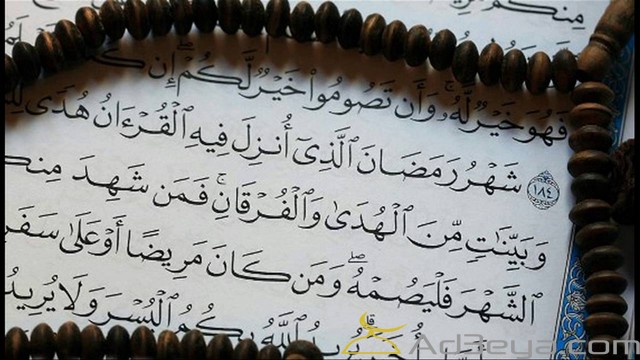 مِنكُم
فَهُوَ خَيْرٌ لَّهُۥ ۚ وَأَن تَصُومُوا۟ خَيْرٌ لَّكُمْ ۖ إِن
١٨٤ شَهْرُ رَمَضَانَ ٱلَّذِىٓ أُنزِلَ فِيهِ ٱلْقُرْءَانُ هُدًى
وَبَيِّنَٰتٍ مِّنَ ٱلْهُدَىٰ وَٱلْفُرْقَانِ ۚ فَمَن شَهِدَ
ٱلشَّهْرَ فَلْيَصُمْهُ ۖ وَمَن كَانَ مَرِيضًا أَوْ عَلَىٰ
ٱللَّهُ بِكُمُ ٱلْيُسْرَ وَلَا يُرِيدُ
Adzeya.com